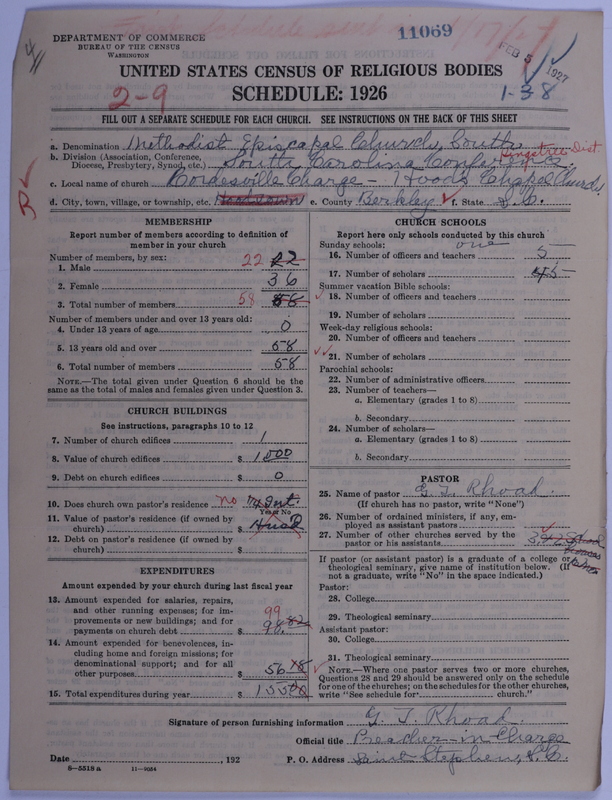 11069
DEPARTMENT OF COMMERCE
BUREAU OF THE CENSUS
WASHINGTON
FEB 5 1927
UNITED STATES CENSUS OF RELIGIOUS BODIES
SCHEDULE: 1926
2-9
1-38
FILL OUT A SEPARATE SCHEDULE FOR EACH CHURCH. SEE INSTRUCTIONS ON THE BACK OF THIS SHEET
a. Denomination Methodist Episcopal Church, South
b. Division (Association, Conference, Diocese, Presbytery, Synod, etc.) South Carolina Conference Kingstree Dist
c. Local name of church Cordesville Charge - Hoods Chapel Church
d. City, town, village, or township, etc. e. County Berkley f. State S.C.
MEMBERSHIP
Report number of members according to definition of
member in your church
Number of members, by sex:
1. Male 22 22
2. Female 36
3. Total number of members 58
Number of members under and over 13 years old:
4. Under 13 years of age 0
5. 13 years old and over 58
6. Total number of members 58
NOTE.—The total given under Question 6 should be the
same as the total of males and females given under Question 3.
CHURCH BUILDINGS
See instructions, paragraphs 10 to 12
7. Number of church edifices 1
8. Value of church edifices $ 1000
9. Debt on church edifices $ 0
10. Does church own pastor's residence no
Yes or No
11. Value of pastor's residence (if owned by
church) $
12. Debt on pastor's residence (if owned by
church) $
EXPENDITURES
Amount expended by your church during last fiscal year
13. Amount expended for salaries, repairs,
and other running expenses; for im-
provements or new buildings; and for
payments on church debt $ 99 98.82
14. Amount expended for benevolences, in-
cluding home and foreign missions; for
denominational support; and for all
other purposes $ 56
15. Total expenditures during year $ 155
CHURCH SCHOOLS
Report here only schools conducted by this church
Sunday schools: one
16. Number of officers and teachers 5
17. Number of scholars 45
Summer vacation Bible schools:
18. Number of officers and teachers
19. Number of scholars
Week-day religious schools:
20. Number of officers and teachers
21. Number of scholars
Parochial schools:
22. Number of administrative officers
23. Number of teachers—
a. Elementary (grades 1 to 8)
b. Secondary
24. Number of scholars—
a. Elementary (grades 1 to 8)
b. Secondary
PASTOR
25. Name of pastor G. T. Rhoad
(If church has no pastor, write "None")
26. Number of ordained ministers, if any, em-
ployed as assistant pastors
27. Number of other churches served by the
pastor or his assistants 3
If pastor (or assistant pastor) is a graduate of a college or
theological seminary, give name of institution below. (If
not a graduate, write "No" in the space indicated.)
Pastor:
28. College
29. Theological seminary
Assistant pastor:
30. College
31. Theological seminary
NOTE.—Where one pastor serves two or more churches,
Questions 28 and 29 should be answered only on the schedule
for one of the churches; on the schedules for the other churches,
write "See schedule for church."
Signature of person furnishing information G. T. Rhoad
Official title Preacher-in-Charge
Date , 192 P. O. Address Saint Stephen, S.C.
8—5518 a 11—9054